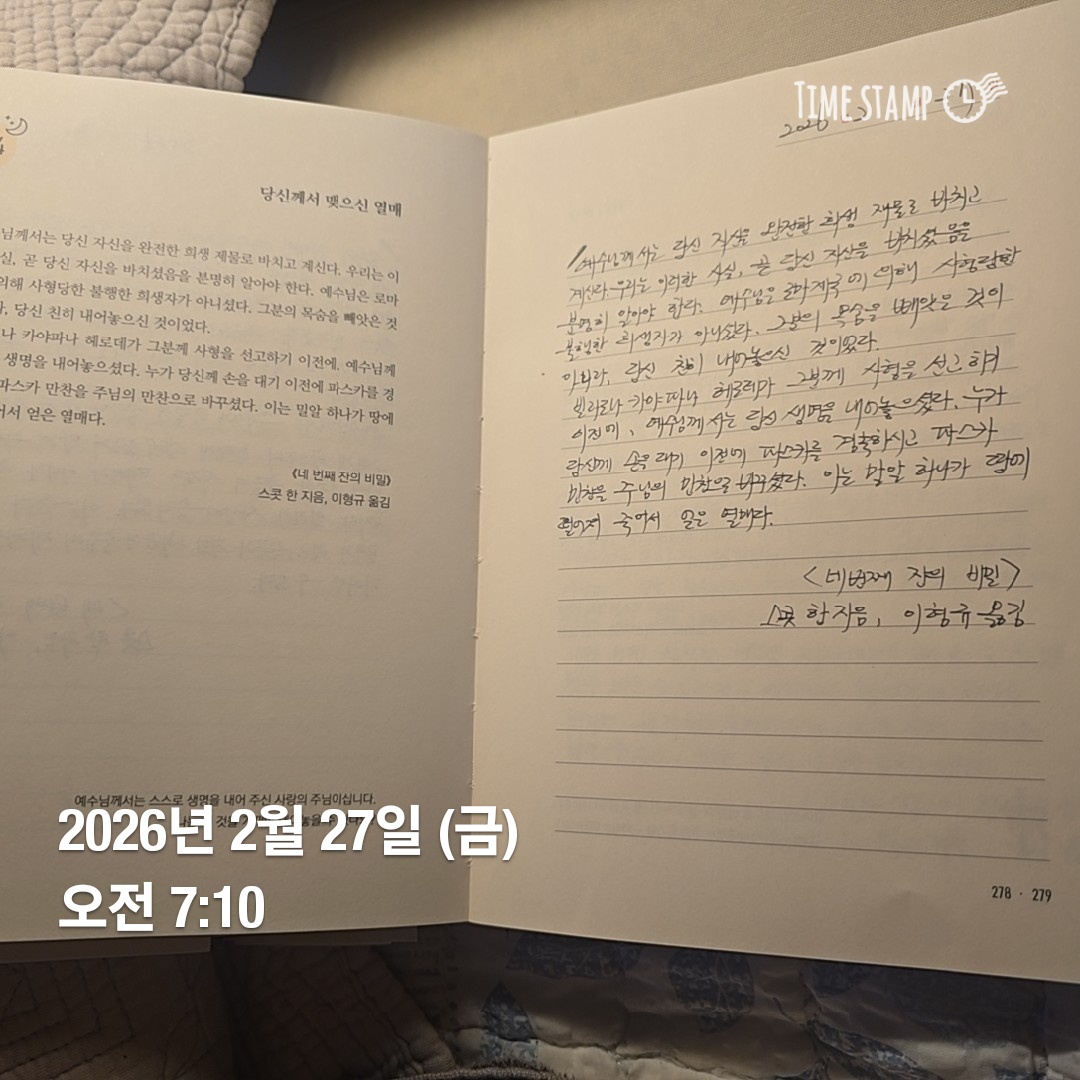 TIME STAMP
당신께서 맺으신 열매
님께서는 당신 자신을 완전한 희생 제물로 바치고 계신다. 우리는 이
실, 곧 당신 자신을 바치셨음을 분명히 알아야 한다. 예수님은 로마
의해 사형당한 불행한 희생자가 아니셨다. 그분의 목숨을 빼앗은 것
, 당신 친히 내어놓으신 것이었다.
나 카야파나 헤로데가 그분께 사형을 선고하기 이전에, 예수님께
생명을 내어놓으셨다. 누가 당신께 손을 대기 이전에 파스카를 경
파스카 만찬을 주님의 만찬으로 바꾸셨다. 이는 밀알 하나가 땅에
어서 얻은 열매다.
《네 번째 잔의 비밀》
스콧 한 지음, 이형규 옮김
예수님께서는 스스로 생명을 내어 주신 사랑의 주님이십니다.
2026
예수님께서는 당신 자신을 완전한 희생 제물로 바치고
계신다. 우리는 이러한 사실, 곧 당신 자신을 바치셨음을
분명히 알아야 한다. 예수님은 로마제국에 의해 사형당한
불행한 희생자가 아니셨다. 그분의 목숨을 빼앗은 것이
아니라, 당신 친히 내어놓으신 것이었다.
빌라도나 카야파나 헤로데가 그분께 사형을 선고하기
이전에, 예수님께서는 당신 생명을 내어놓으셨다. 누가
당신께 손을 대기 이전에 파스카를 경축하시고 파스카
만찬을 주님의 만찬으로 바꾸셨다. 이는 밀알 하나가 땅에
떨어져 죽어서 얻은 열매다.
<네번째 잔의 비밀>
스콧 한 지음, 이형규 옮김
278 · 279
2026년 2월 27일 (금)
오전 7:10